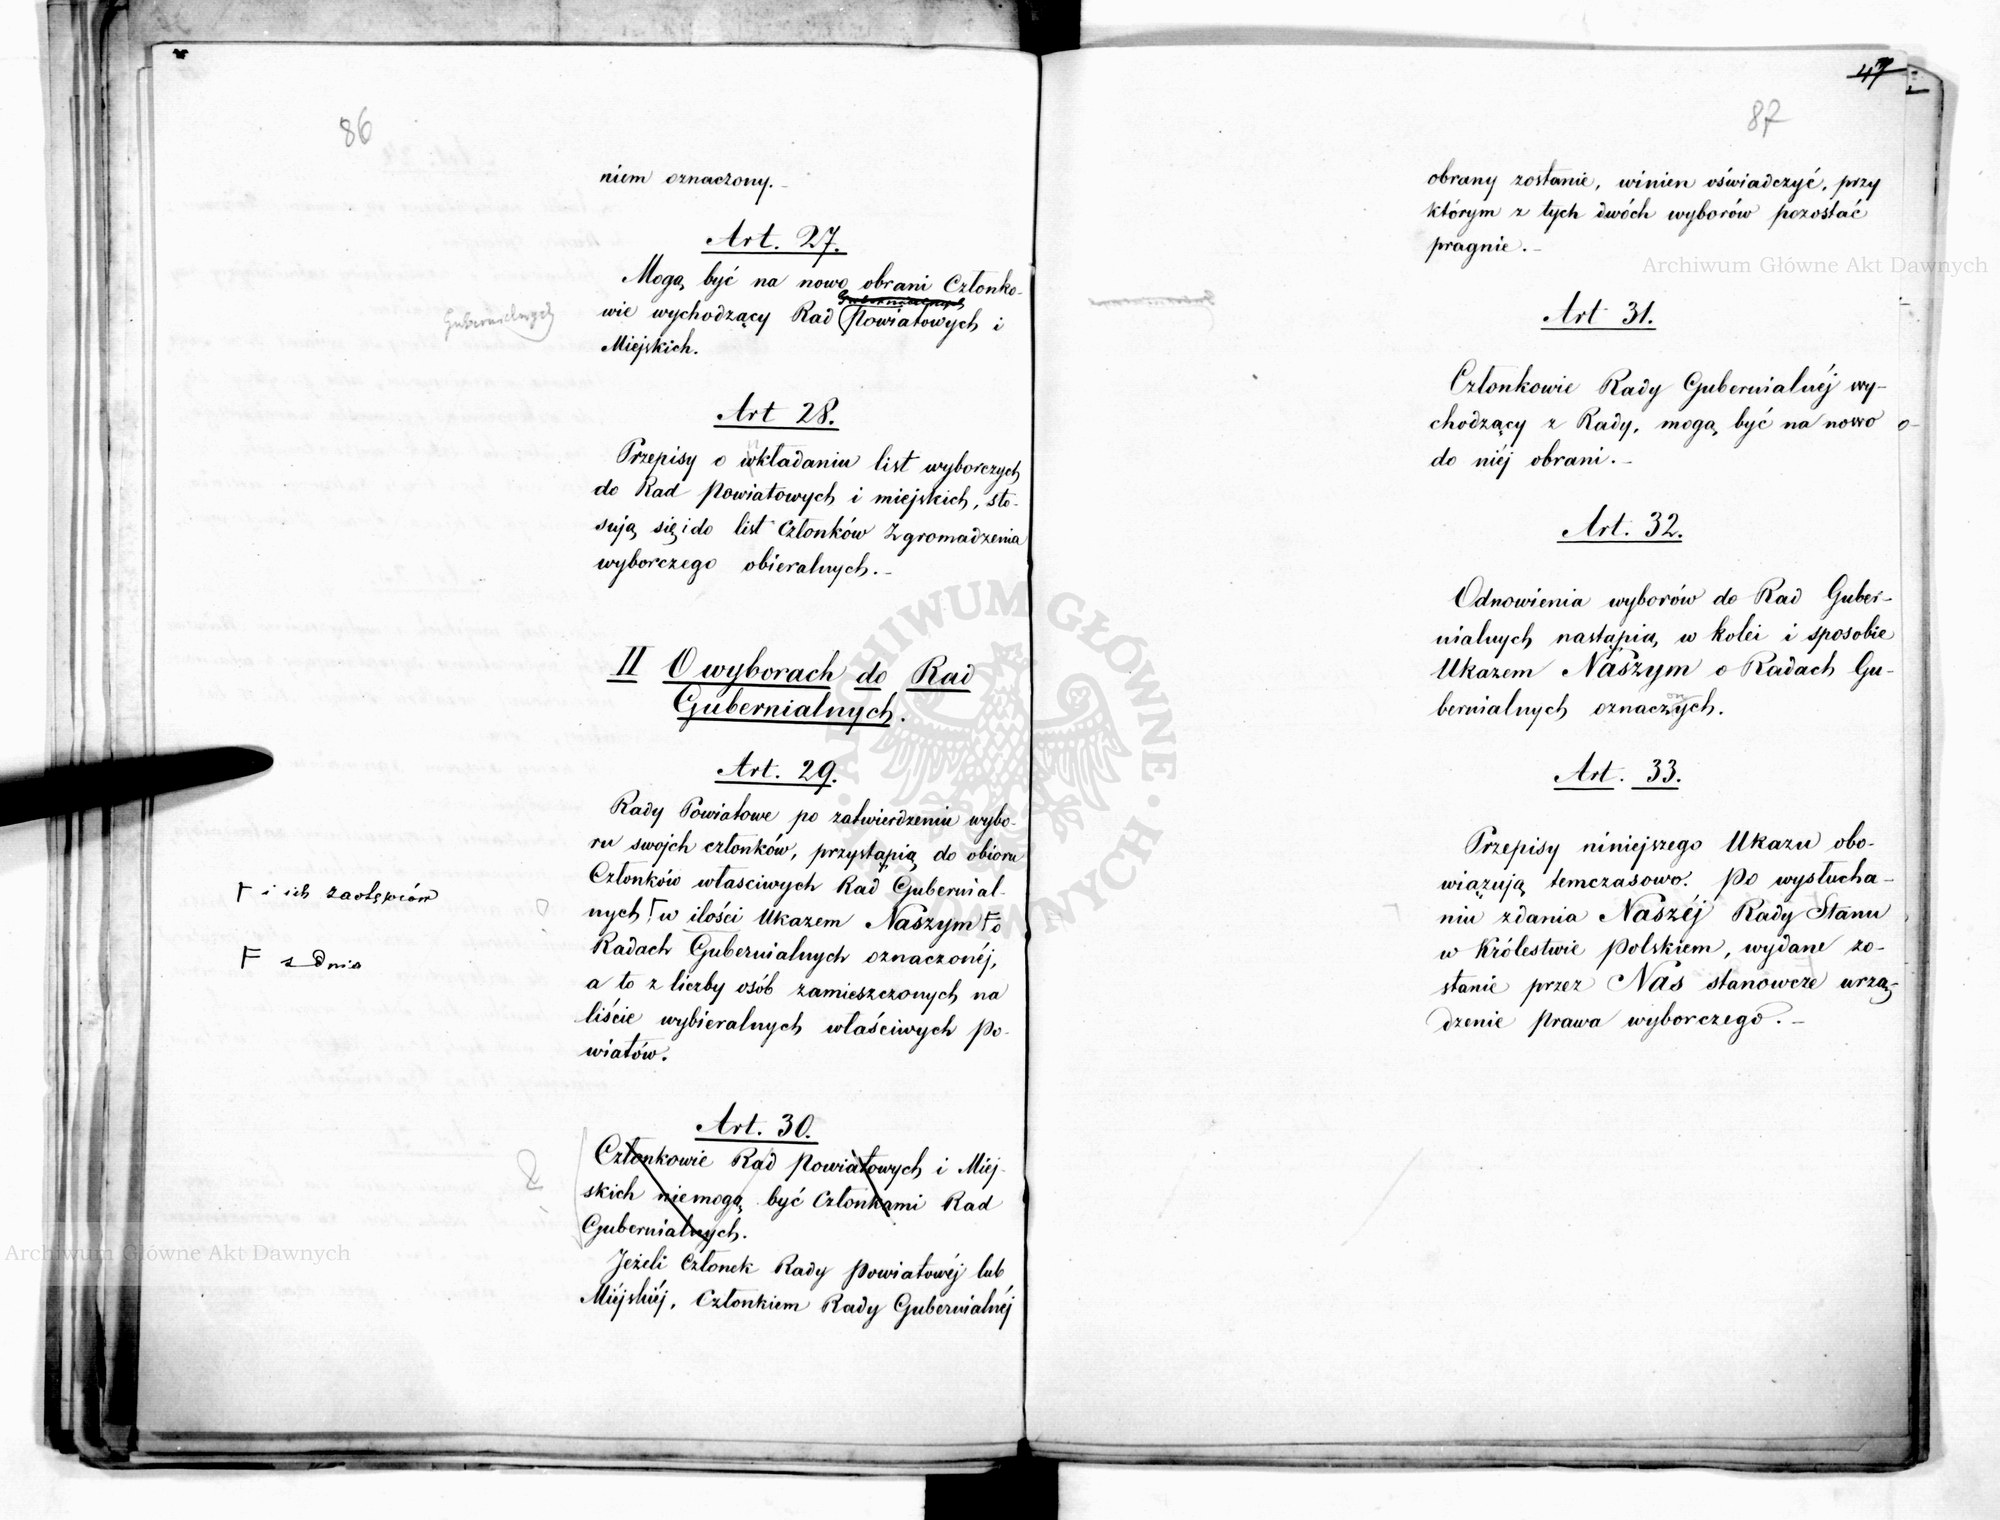 86
niem oznaczony.
Art. 27.
Mogą być na nowo obrani Członko-
Gubernialnych
wie wychodzący Rad Powiatowych i
Gubernialnych
Miejskich.
Art 28.
Przepisy o wkładaniu list wyborczych
do Rad Powiatowych i miejskich, sto-
sują się i do list Członków Zgromadzenia
wyborczego obieralnych.
II O wyborach do Rad
Gubernialnych.
Art. 29.
Rady Powiatowe po zatwierdzeniu wybo-
ru swojch członków, przystąpią do obioru
Członków własciwych Rad Gubernial-
nych w ilości Ukazem Naszym o
Radach Gubernialnych oznaczonéj,
a to z liczby osób zamieszczonych na
liście wybieralnych właściwych Po-
wiatów.
i ich zastępców
z dnia
Art. 30.
Członkowie Rad Powiatowych i Miej-
skich niemogą być Członkami Rad
Gubernialnych.
Jeżeli Członek Rady Powiatowéj lub
Miejskiéj, Członkiem Rady Gubernialnéj
47
87
obrany zostanie, winien oświadczyć, przy
którym z tych dwóch wyborów pozostać
pragnie.
Art 31.
Członkowie Rady Gubernialnéj wy-
chodzący z Rady, mogą być na nowo
do niéj obrani.
Art. 32.
Odnowienia wyborów do Rad Guber-
nialnych nastąpią w kolei i sposobie
Ukazem Naszym o Radach Gu-
bernialnych oznaczonych.
Art. 33.
Przepisy niniejszego Ukazu obo-
wiązują temczasowo. Po wysłucha-
niu zdania Naszéj Rady Stanu
w Królestwie Polskiem, wydane zo-
stanie przez Nas stanowcze urzą-
dzenie prawa wyborczego.
Archiwum Główne Akt Dawnych
Archiwum Główne Akt Dawnych
ARCHIWUM GŁÓWNE AKT DAWNYCH